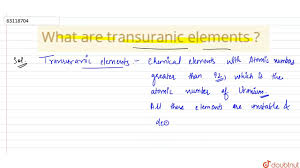 83118704
What are transuranic elements ?
Sol. Transuranic elements - Chemical elements with Atomic number
greater than 92, which is the
atomic number of Uranium.
All these elements are unstable &
deo
doubtnut